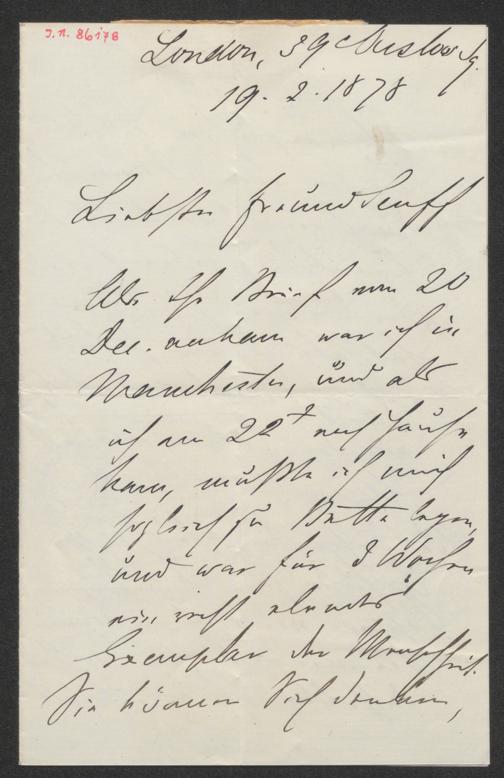 J.N. 86178
London, 39 Onslow Sq.
19. 2. 1878
Liebster Freund Senff
Als Ihr Brief vom 20
Dec. ankam war ich in
Manchester, und als
ich am 22t nach Hause
kam, mußte ich mich
sogleich zu Bette legen,
und war für 3 Wochen
ein recht elendes
Exemplar der Menschheit.
Sie können Sich denken,